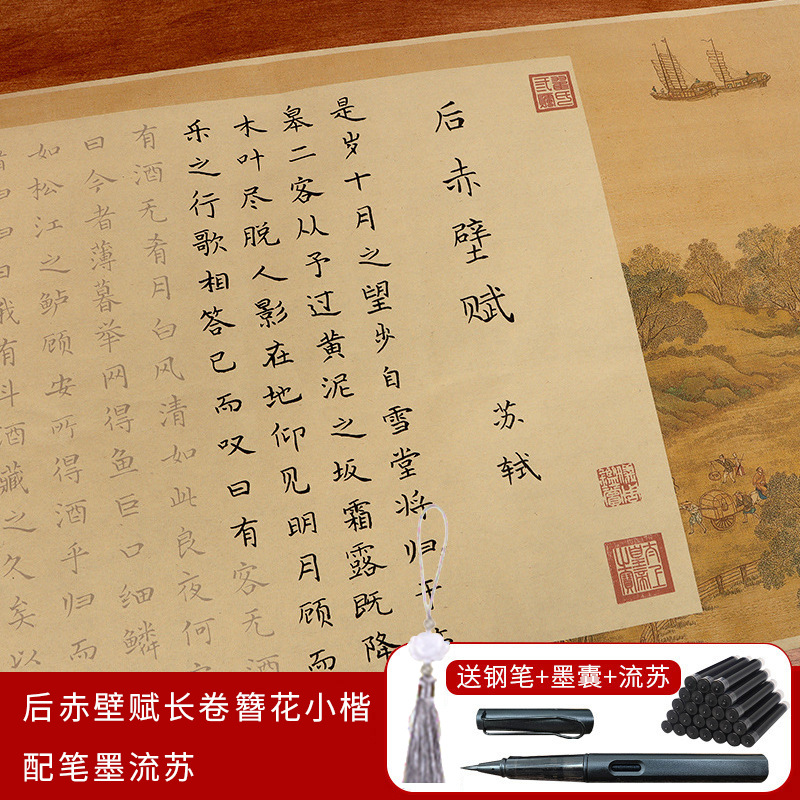 后赤壁赋
苏轼
是岁十月之望步自雪堂将归于
皋二客从予过黄泥之坂霜露既降
木叶尽脱人影在地仰见明月顾而
乐之行歌相答已而叹曰有客无酒
有酒无肴月白风清如此良夜何
曰今者薄暮举网得鱼巨口细鳞
如松江之鲈顾安所得酒乎归而
我有斗酒藏之久矣以
送钢笔+墨囊+流苏
后赤壁赋长卷簪花小楷
配笔墨流苏